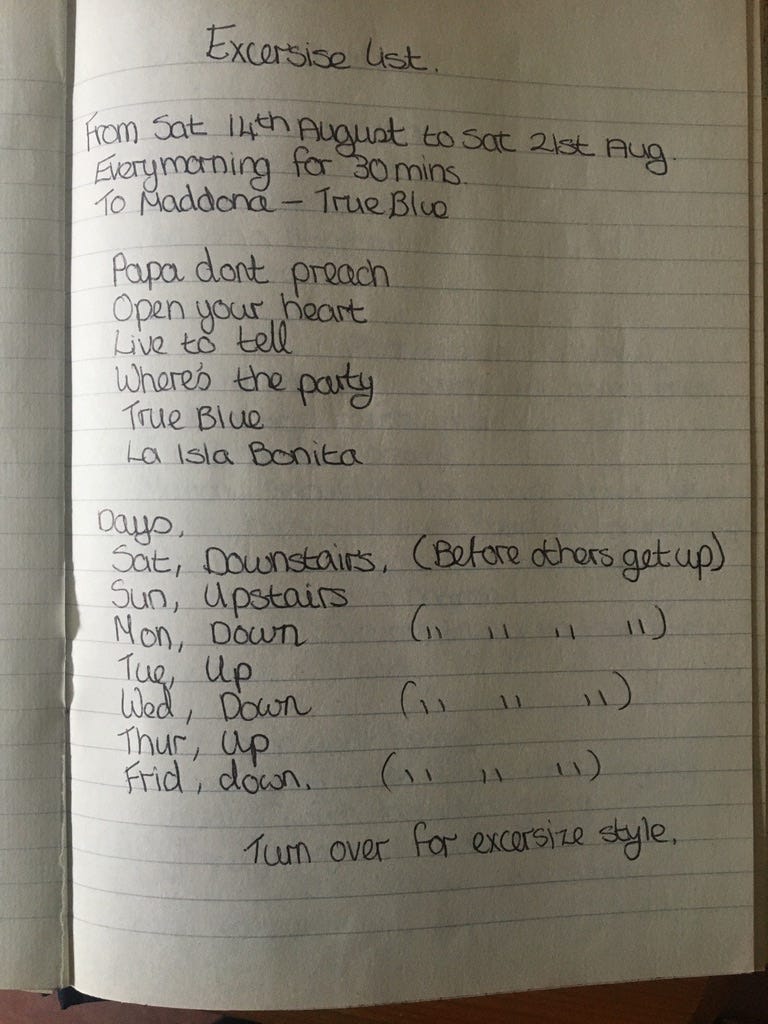 Excersise list.
From Sat 14th August to Sat 21st Aug.
Everymorning for 30 mins.
To Maddona – True Blue
Papa dont preach
Open your heart
Live to tell
Where's the party
True Blue
La Isla Bonita
Days,
Sat, Downstairs, (Before others get up)
Sun, Upstairs
Mon, Down (" " " ")
Tue, Up
Wed, Down (" " ")
Thur, Up
Frid, down. (" " ")
Turn over for excersize style.